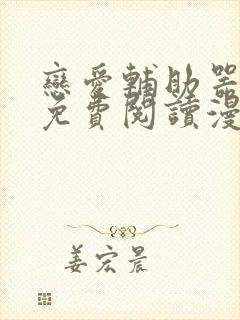 戀愛輔助器
免費閱讀漫
姜宏晨